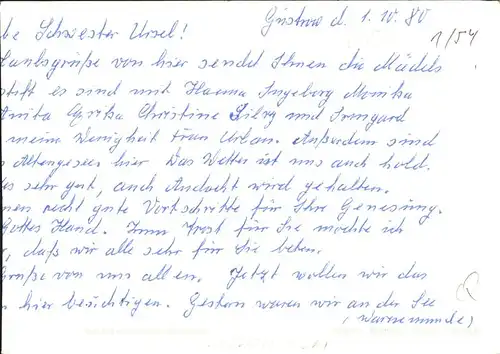 Güstrow d. 1. 10. 80
1/54
be Schwester Ursel!
laubsgrüße von hier sendet Ihnen die Mädels
stift es sind mit Hanna Ingeborg Monika
Anita Christine und Irmgard
meine Wenigkeit Frau Urban. Außerdem sind
hier Das Wetter ist uns auch hold.
es sehr gut, auch Andacht wird gehalten.
nen recht gute Vortschritte für Ihre Genesung.
Gottes Hand. Zum Trost für Sie möchte ich
, daß wir alle sehr für Sie beten.
Grüße von uns allen. Jetzt wollen wir das
n hier besichtigen. Gestern waren wir an der See
(Warnemünde)